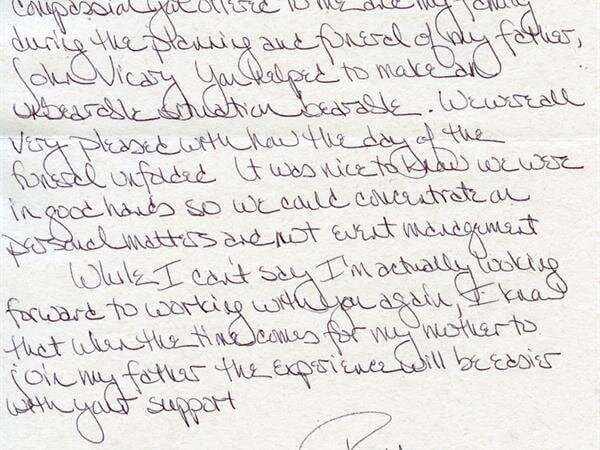 compassion you offered to me and my family
during the planning and funeral of my father,
John Vicary You helped to make an
unbearable situation bearable. We were all
very pleased with how the day of the
funeral unfolded It was nice to know we were
in good hands so we could concentrate on
personal matters and not event management
While I can't say I'm actually looking
forward to working with you again, I know
that when the time comes for my mother to
join my father the experience will be easier
with your support